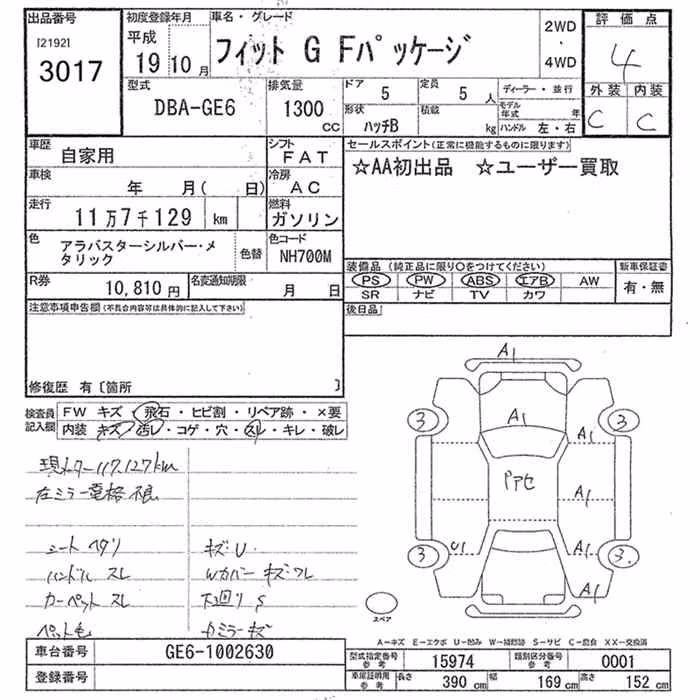 出品番号
[2192]
3017
初度登録年月
平成
19 10 月
車名・グレード
フィット G Fパッケージ
2WD
・
4WD
評価点
4
外装 内装
C C
型式
DBA-GE6
排気量
1300
CC
ドア
5
定員
5 人
形状
ハッチB
積載
kg
ディーラー・並行
モデル年式 年
ハンドル 左・右
車歴
自家用
シフト
FAT
車検
年 月( 日)
冷房
AC
走行
11万7千129 km
燃料
ガソリン
色
アラバスターシルバー・メタリック
色替
色コード
NH700M
R券
10,810 円
名変通知期限
月 日
セールスポイント(正常に機能するものに限ります)
☆AA初出品 ☆ユーザー買取
装備品 (純正品に限り○をつけてください)
PS PW ABS エアB AW
SR ナビ TV カワ
新車保証書
有・無
後日品
注意事項申告欄(不具合内容等は具体的に記入して下さい)
修復歴 有〔箇所 〕
検査員記入欄
FW キズ・飛石・ヒビ割・リペア跡・×要
内装 キズ・汚レ・コゲ・穴・スレ・キレ・破レ
現メーター117,127km
左ミラー電格不良
シート ヘタリ
ハンドル スレ
カーペット スレ
ペット毛
キズ U
Wカバー キズ・ワレ
下廻り S
カミラー キズ
A1
3
3
A1
A1
Pアセ
A1
3
U1
A1
3
A1
スペア
A-キズ E-エクボ U-凹み W-補修跡 S-サビ C-腐食 XX-交換済
車台番号
GE6-1002630
登録番号
型式指定番号 参考
15974
類別区分番号 参考
0001
車庫証明用 参考
長さ 390 cm
幅 169 cm
高さ 152 cm